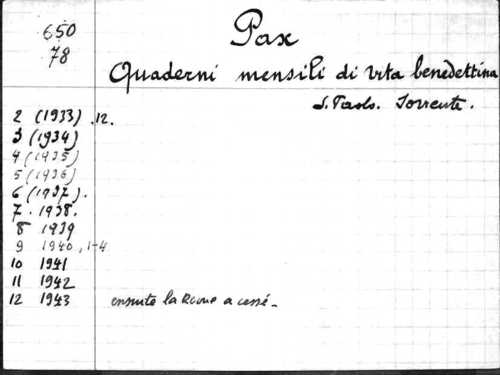 650
78
Pax
Quaderni mensili di vita benedettina
S. Paolo. Sorrento.
2 (1933) .12.
3 (1934)
4 (1935)
5 (1936)
6 (1937).
7. 1938.
8 1939
9 1940, 1-4
10 1941
11 1942
12 1943 ensuite la Revue a cessé.